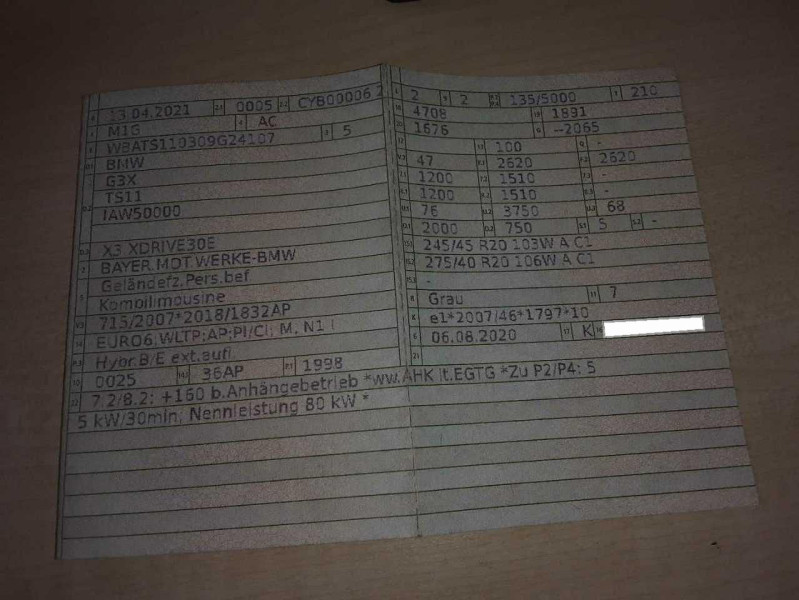 13.04.2021 0005 CYB00006 2
M1G AC
WBATS110309G24107 5
BMW
G3X
TS11
IAW50000
X3 XDRIVE30E
BAYER.MOT.WERKE-BMW
Geländefz.Pers.bef
Kombilimousine
715/2007*2018/1832AP
EURO6;WLTP;AP;PI/CI; M, N1 I
Hybr.B/E ext.aufl.
0025 36AP 1998
7.2/8.2: +160 b.Anhängebetrieb *ww.AHK lt.EGTG *Zu P2/P4: 5
5 kW/30min, Nennleistung 80 kW *
2 2 135/5000 210
4708 1891
1676 --2065
100 -
47 2620 2620
1200 1510 -
1200 1510 -
76 3750 68
2000 750 5 -
245/45 R20 103W A C1
275/40 R20 106W A C1
-
Grau 7
e1*2007/46*1797*10
06.08.2020 K